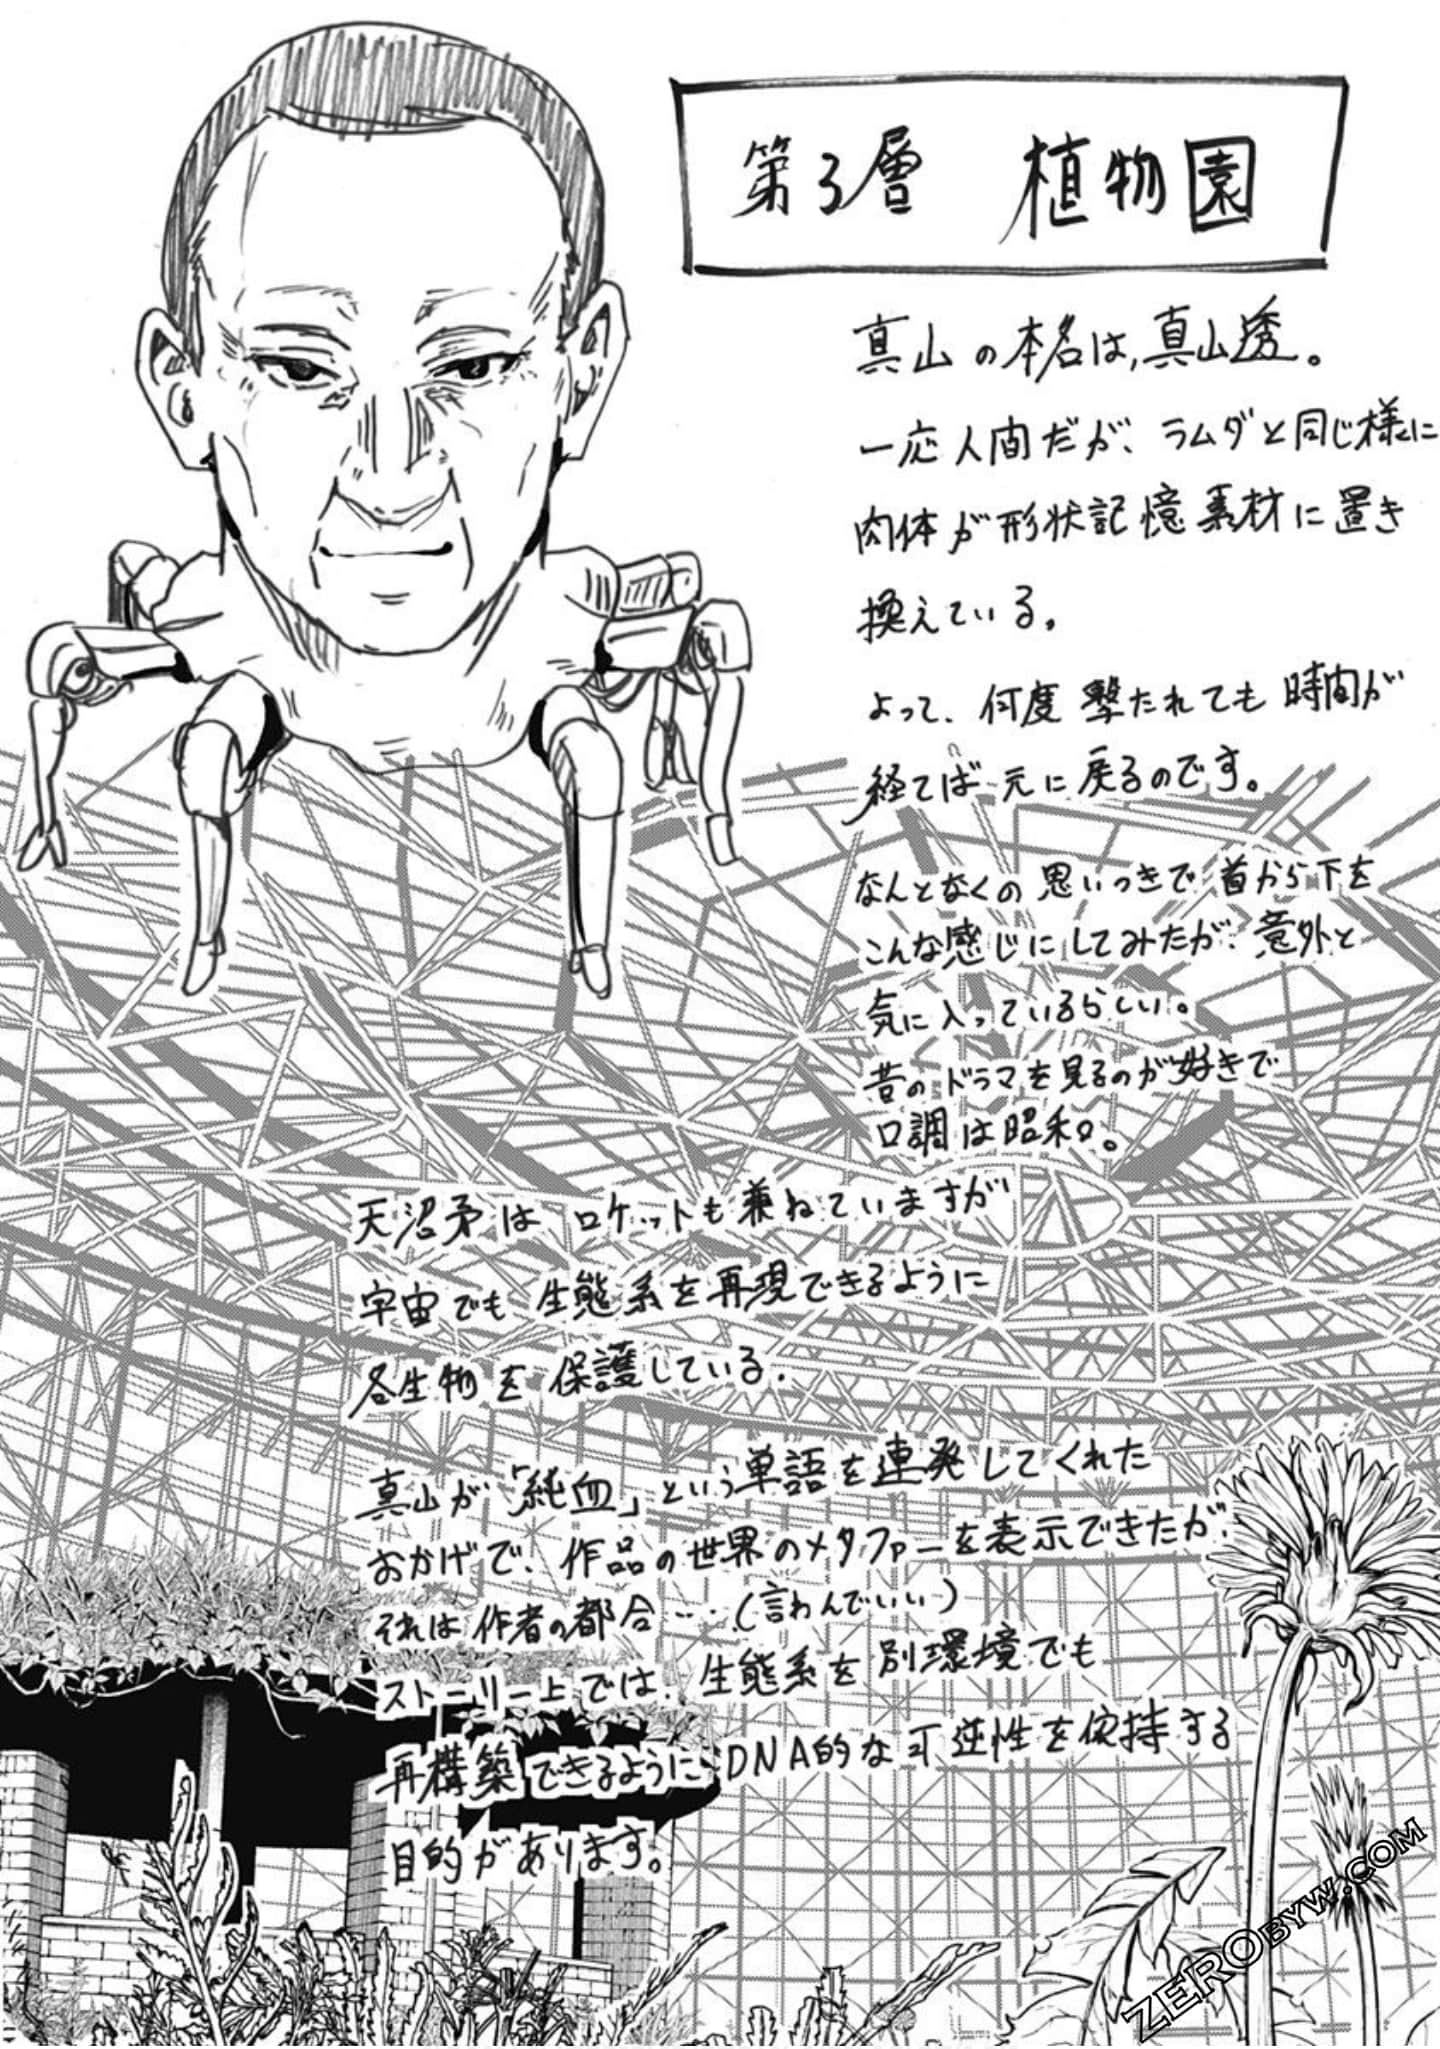 第3層 植物園
真山の本名は、真山透。
一応人間だが、ラムダと同じ様に
肉体が形状記憶素材に置き
換えている。
よって、何度撃たれても時間が
経てば元に戻るのです。
なんとなくの思いつきで首から下を
こんな感じにしてみたが、意外と
気に入っているらしい。
昔のドラマを見るのが好きで
口調は昭和。
天沼矛はロケットも兼ねていますが
宇宙でも生態系を再現できるように
各生物を保護している。
真山が「純血」という単語を連発してくれた
おかげで、作品の世界のメタファーを表示できたが、
それは作者の都合…(言わんでいい)
ストーリー上では、生態系を別環境でも
再構築できるようにDNA的な可逆性を保持する
目的があります。
ZEROBYW.COM